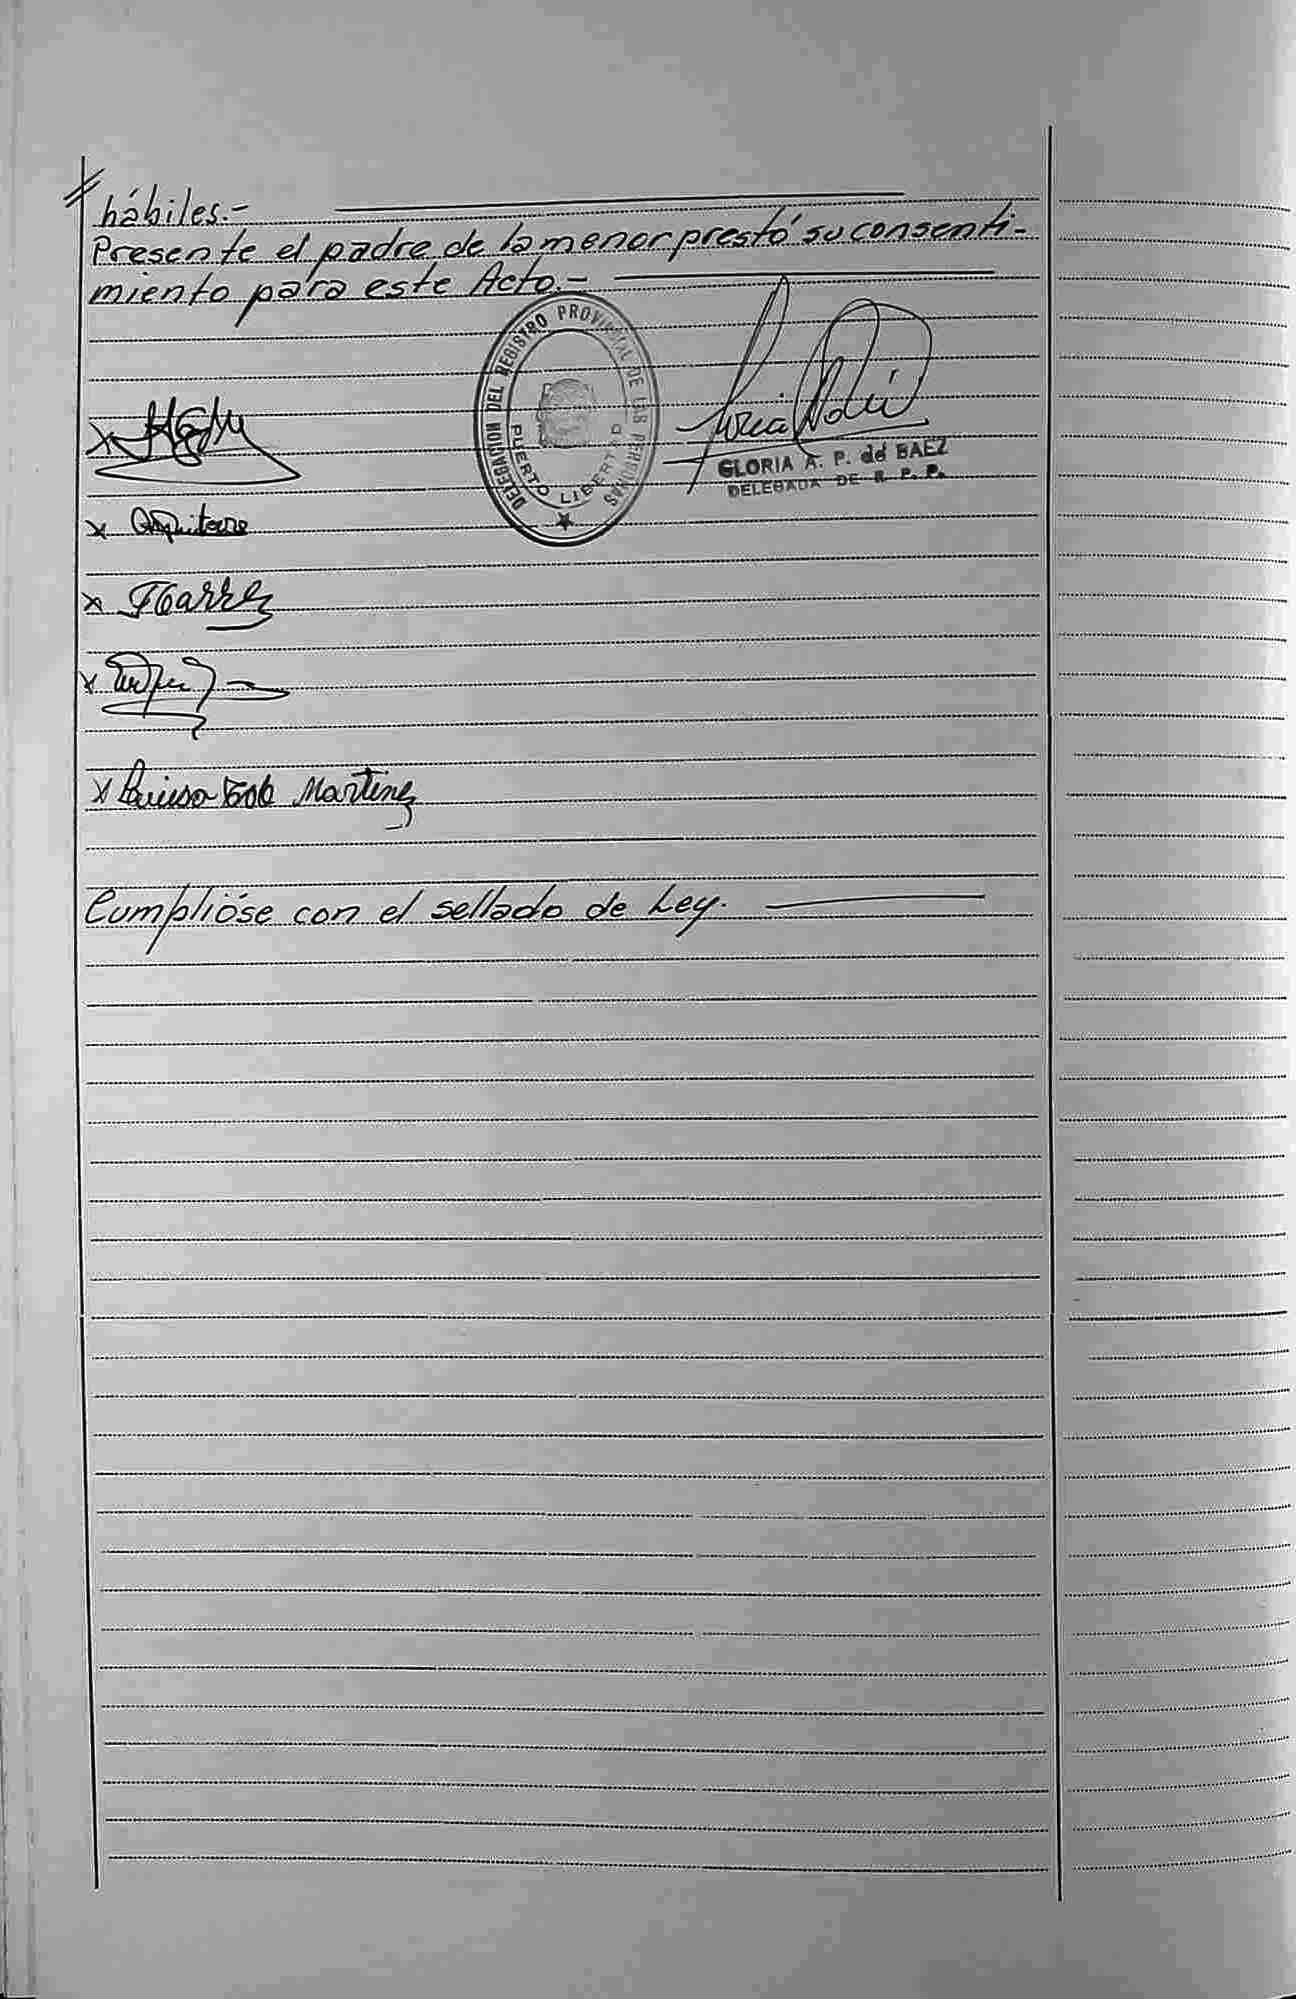 hábiles.-
Presente el padre de la menor prestó su consenti-
miento para este Acto.-
DELEGACION DEL REGISTRO PROVINCIAL DE LAS PERSONAS
PUERTO LIBERTAD
GLORIA A. P. de BAEZ
DELEGADA DE R. P. P.
x
x
x
x
x Martinez
Cumplióse con el sellado de Ley.